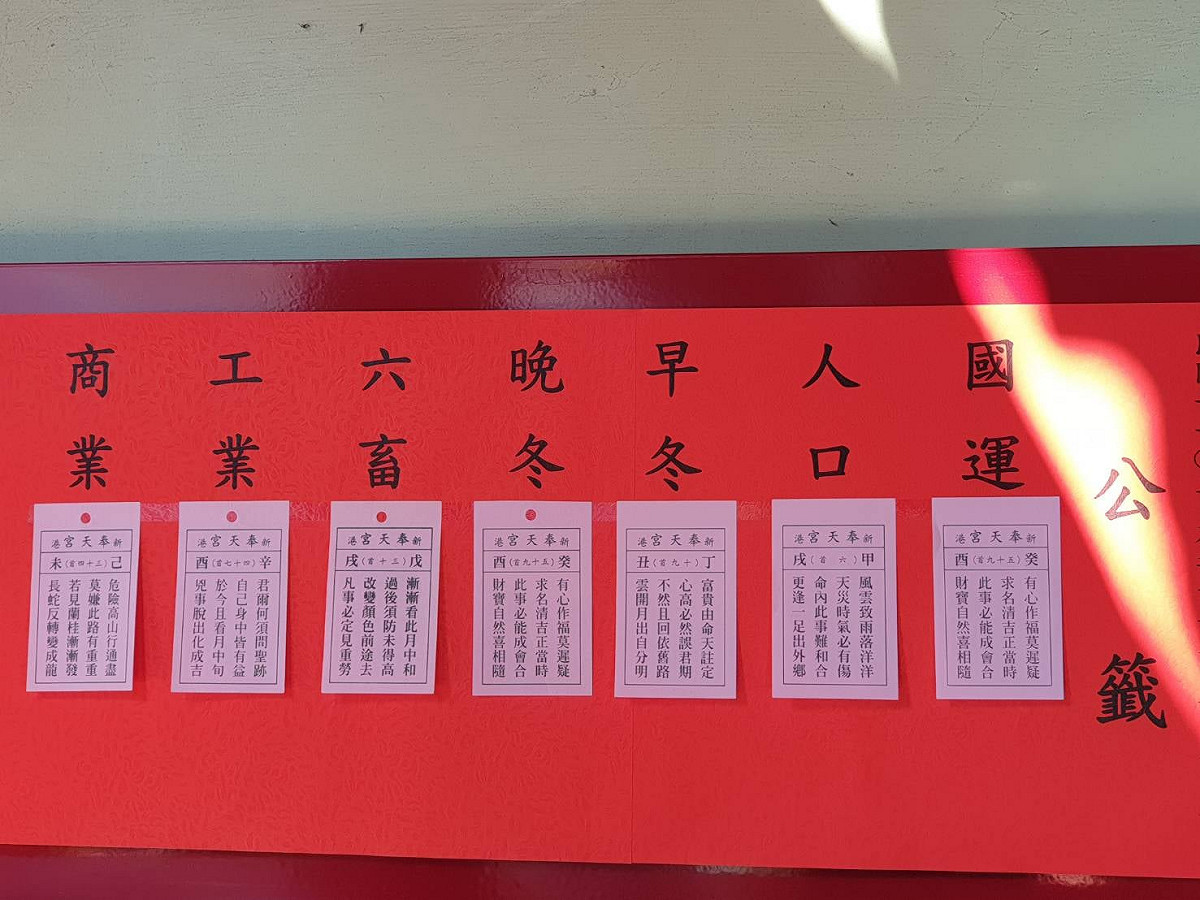 公籤
國運
新奉天宮港
癸(五十九首)酉
有心作福莫遲疑
求名清吉正當時
此事必能成會合
財寶自然喜相隨
人口
新奉天宮港
甲(六首)戌
風雲致雨落洋洋
天災時氣必有傷
命內此事難和合
更逢一足出外鄉
早冬
新奉天宮港
丁(十九首)丑
富貴由命天註定
心高必然誤君期
不然且回依舊路
雲開月出自分明
晚冬
新奉天宮港
癸(五十九首)酉
有心作福莫遲疑
求名清吉正當時
此事必能成會合
財寶自然喜相隨
六畜
新奉天宮港
戊(三十首)戌
漸漸看此月中和
過後須防未得高
改變顏色前途去
凡事必定見重勞
工業
新奉天宮港
辛(四十七首)酉
君爾何須問聖跡
自己身中皆有益
於今且看月中旬
兇事脫出化成吉
商業
新奉天宮港
己(三十四首)未
危險高山行通盡
莫嫌此路有重重
若見蘭桂漸漸發
長蛇反轉變成龍